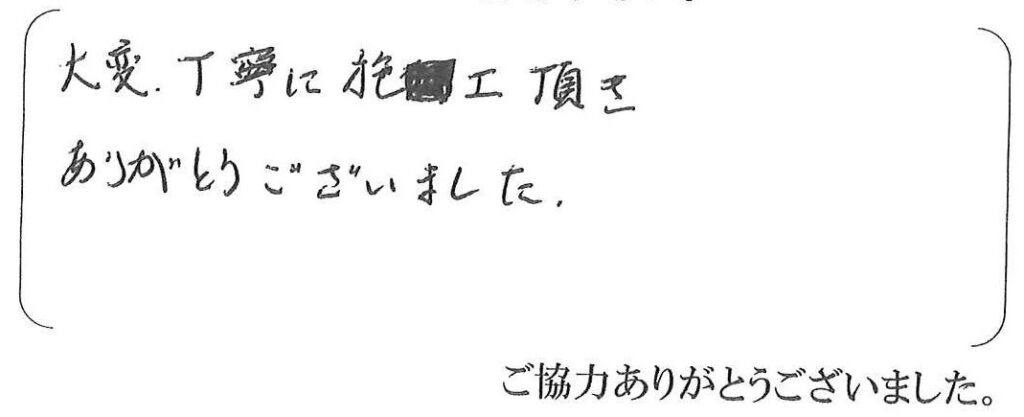 大変.丁寧に施工頂き
ありがとうございました.
ご協力ありがとうございました。